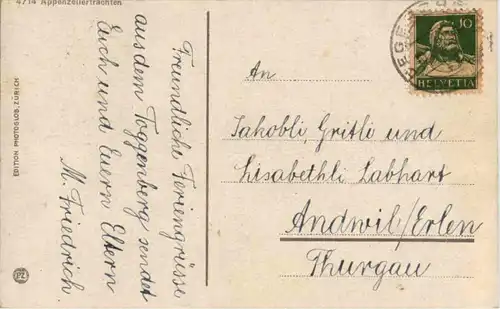 4714 Appenzellertrachten
Freundliche Feriengrüsse
aus dem Toggenberg sendet
Euch und Euern Eltern
M. Friedrich.
EDITION PHOTOGLOB, ZÜRICH
PZ
10
HELVETIA
An
Jakobli, Gritli und
Lisabethli Labhart
Andwil/Erlen
Thurgau